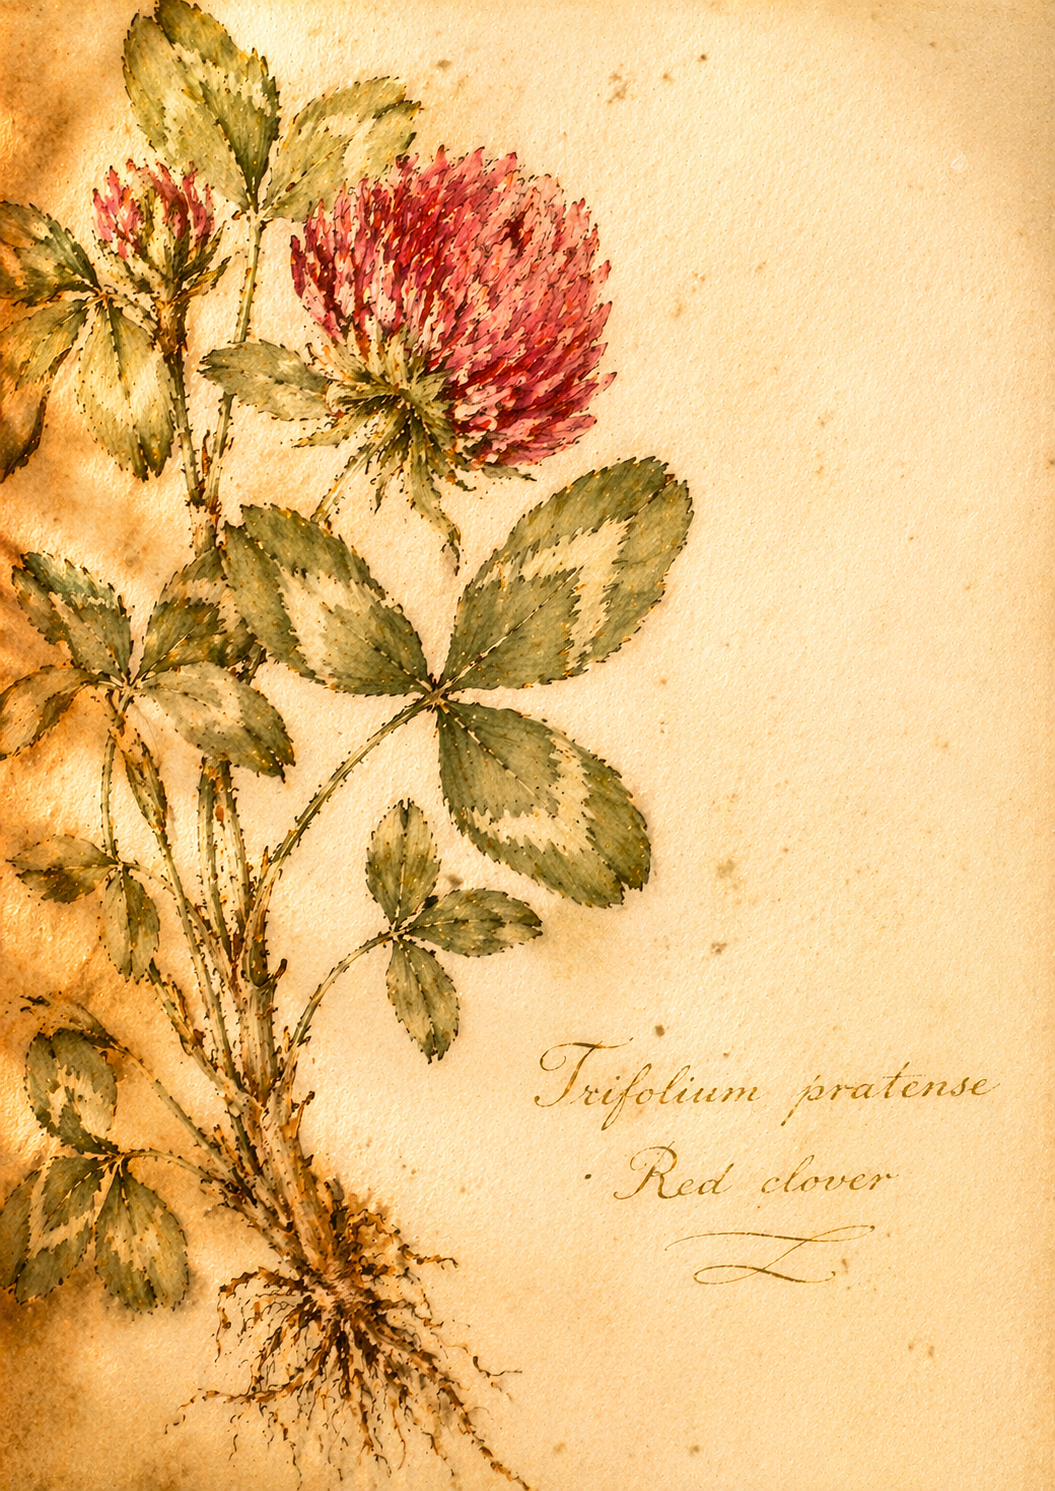 Trifolium pratense
Red clover